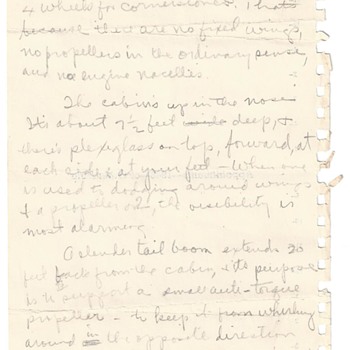 4 wheels for cornerstones. That's
because there are no fixed wings,
no propellers in the ordinary sense,
and no engine nacelles.
The cabins up in the nose
It's about 7½ feel wide deep, &
there's plexiglass on top, forward, at
each side & at your feet - When one
is used to dodging around wings
& a propeller or 2, the visibility is
most alarming.
A slender tail boom extends 20
feet back from the cabin, & its purpose
is to support a small anti-torque
propeller - to keep it from whirling
around in the opposite direction